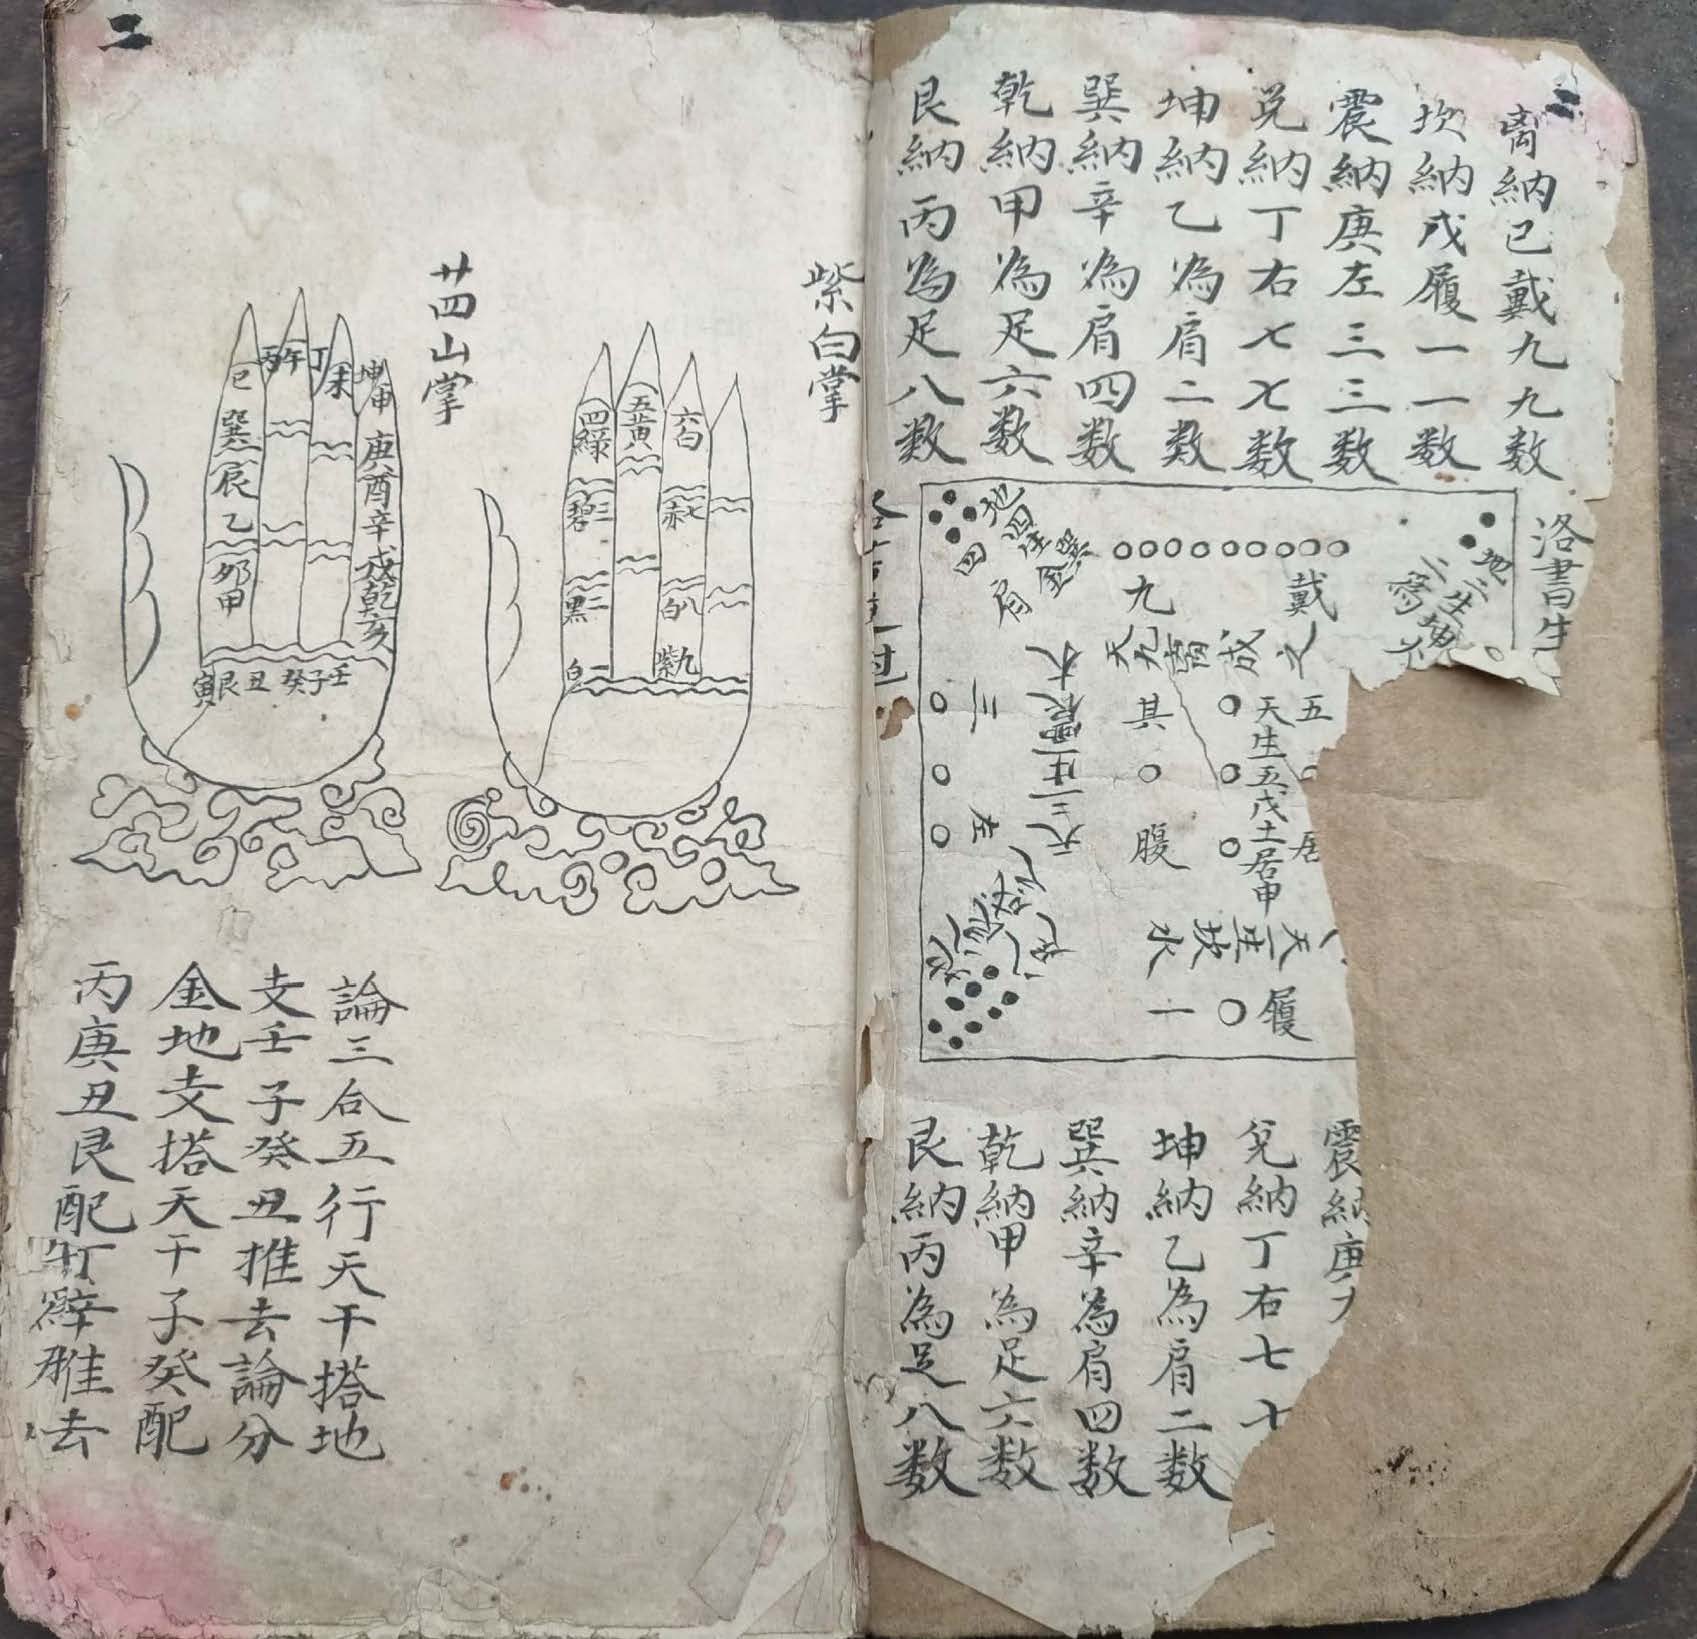 离納己戴九九数
坎納戊履一一数
震納庚左三三数
兑納丁右七七数
坤納乙為肩二数
巽納辛為肩四数
乾納甲為足六数
艮納丙為足八数
洛書生
地二生
二為
戴九
天九离成之
地四生巽金
四肩
五居
天生五戊土居中
其腹
三左
天三生震木
履一
天一生坎水
震納庚
兌納丁右七
坤納乙為肩二数
巽納辛為肩四数
乾納甲為足六数
艮納丙為足八数
二
紫白掌
四綠
五黄
六白
三碧
七赤
二黑
八白
一白
九紫
廿四山掌
巳
丙午
丁未
坤申
巽辰乙卯甲
庚酉辛戌乾亥
寅艮丑癸子壬
論三合五行天干搭地
支壬子癸丑推去論分
金地支搭天干子癸配
丙庚丑艮配丁辛推去